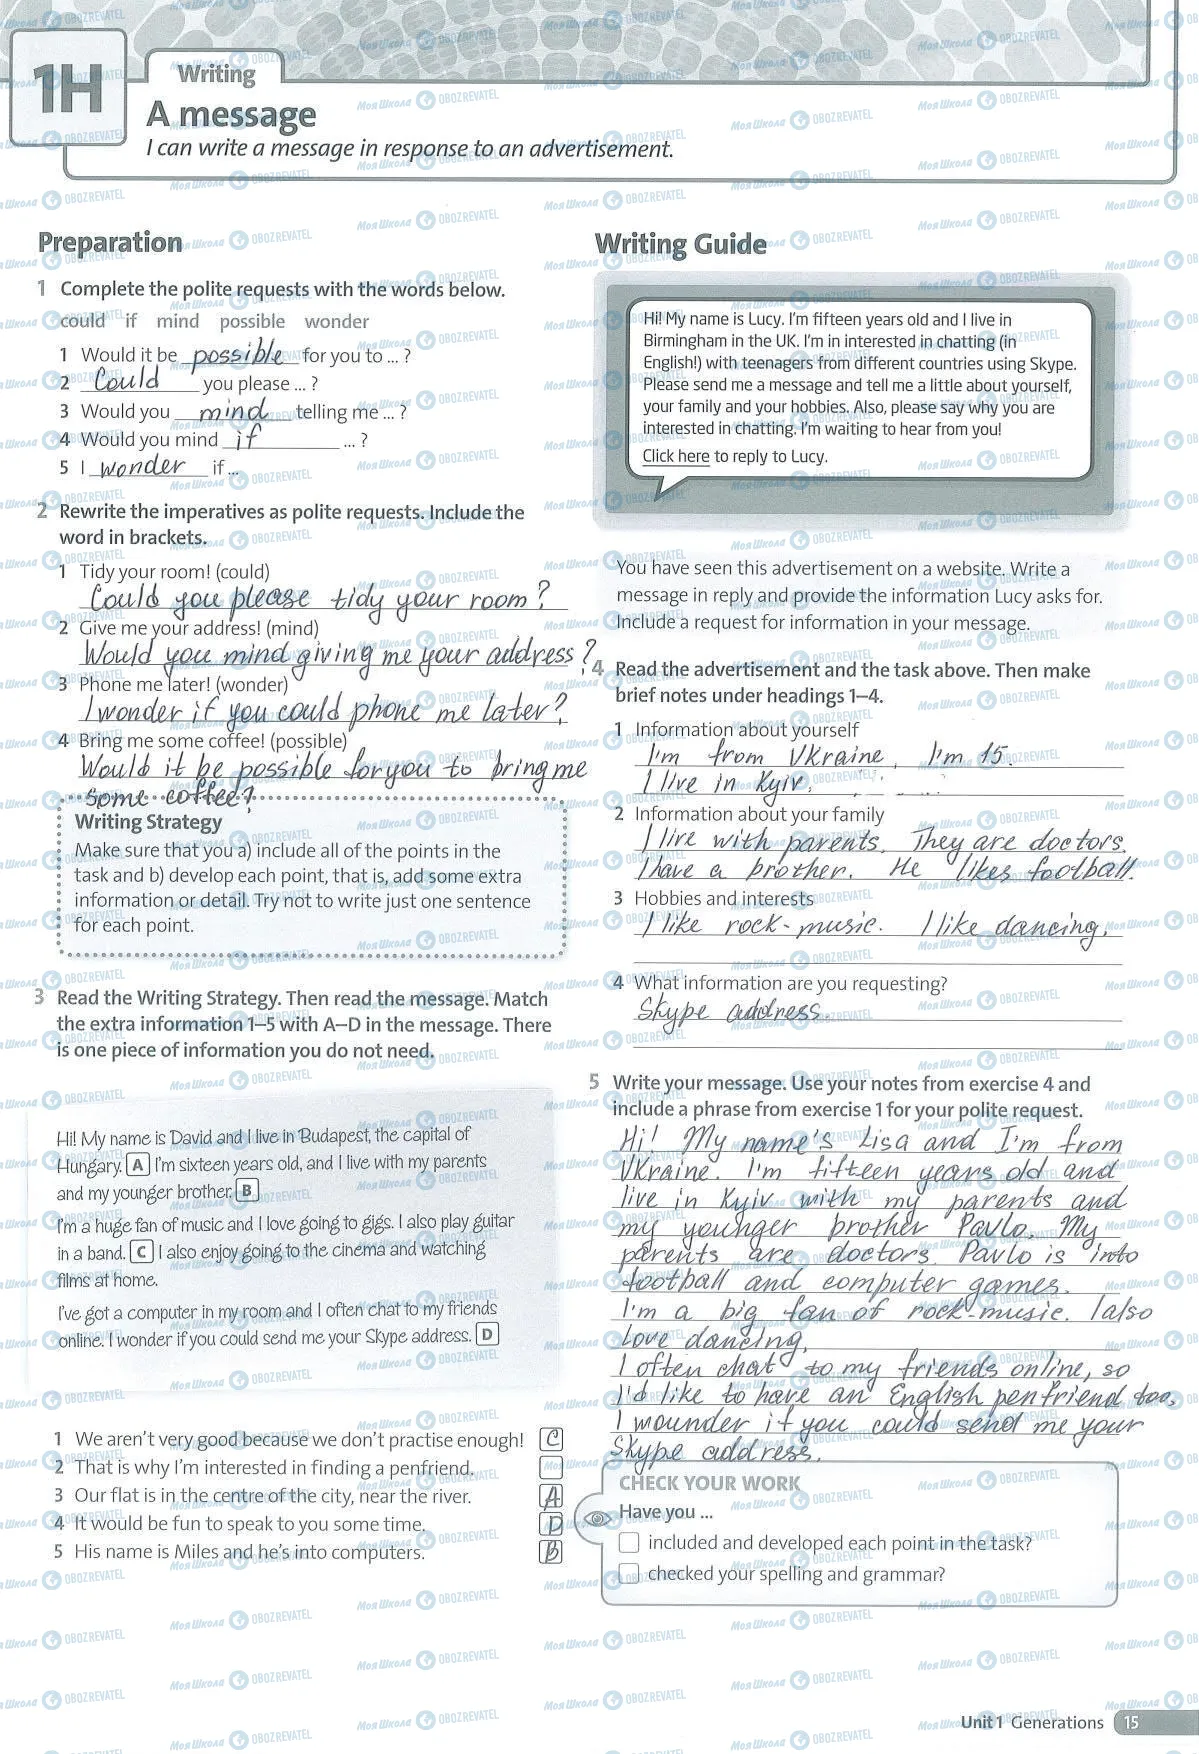 1H
Writing
A message
I can write a message in response to an advertisement.
Preparation
1 Complete the polite requests with the words below.
could if mind possible wonder
1 Would it be possible for you to ... ?
2 Could you please ... ?
3 Would you mind telling me ... ?
4 Would you mind if ... ?
5 I wonder if ...
2 Rewrite the imperatives as polite requests. Include the
word in brackets.
1 Tidy your room! (could)
Could you please tidy your room?
2 Give me your address! (mind)
Would you mind giving me your address?
3 Phone me later! (wonder)
I wonder if you could phone me later?
4 Bring me some coffee! (possible)
Would it be possible for you to bring me
some coffee?
Writing Strategy
Make sure that you a) include all of the points in the
task and b) develop each point, that is, add some extra
information or detail. Try not to write just one sentence
for each point.
3 Read the Writing Strategy. Then read the message. Match
the extra information 1–5 with A–D in the message. There
is one piece of information you do not need.
Hi! My name is David and I live in Budapest, the capital of
Hungary. A I'm sixteen years old, and I live with my parents
and my younger brother. B
I'm a huge fan of music and I love going to gigs. I also play guitar
in a band. C I also enjoy going to the cinema and watching
films at home.
I've got a computer in my room and I often chat to my friends
online. I wonder if you could send me your Skype address. D
1 We aren't very good because we don't practise enough! C
2 That is why I'm interested in finding a penfriend.
3 Our flat is in the centre of the city, near the river. A
4 It would be fun to speak to you some time. D
5 His name is Miles and he's into computers. B
Writing Guide
Hi! My name is Lucy. I'm fifteen years old and I live in
Birmingham in the UK. I'm in interested in chatting (in
English!) with teenagers from different countries using Skype.
Please send me a message and tell me a little about yourself,
your family and your hobbies. Also, please say why you are
interested in chatting. I'm waiting to hear from you!
Click here to reply to Lucy.
You have seen this advertisement on a website. Write a
message in reply and provide the information Lucy asks for.
Include a request for information in your message.
4 Read the advertisement and the task above. Then make
brief notes under headings 1–4.
1 Information about yourself
I'm from Ukraine, I'm 15.
I live in Kyiv.
2 Information about your family
I live with parents. They are doctors.
I have a brother. He likes football.
3 Hobbies and interests
I like rock-music. I like dancing.
4 What information are you requesting?
Skype address.
5 Write your message. Use your notes from exercise 4 and
include a phrase from exercise 1 for your polite request.
Hi! My name's Lisa and I'm from
Ukraine. I'm fifteen years old and
live in Kyiv with my parents and
my younger brother Pavlo. My
parents are doctors. Pavlo is into
football and computer games.
I'm a big fan of rock-music. I also
love dancing.
I often chat to my friends online, so
I'd like to have an English penfriend too,
I wounder if you could send me your
Skype address.
CHECK YOUR WORK
Have you ...
included and developed each point in the task?
checked your spelling and grammar?
Unit 1 Generations 15
Моя Школа OBOZREVATEL